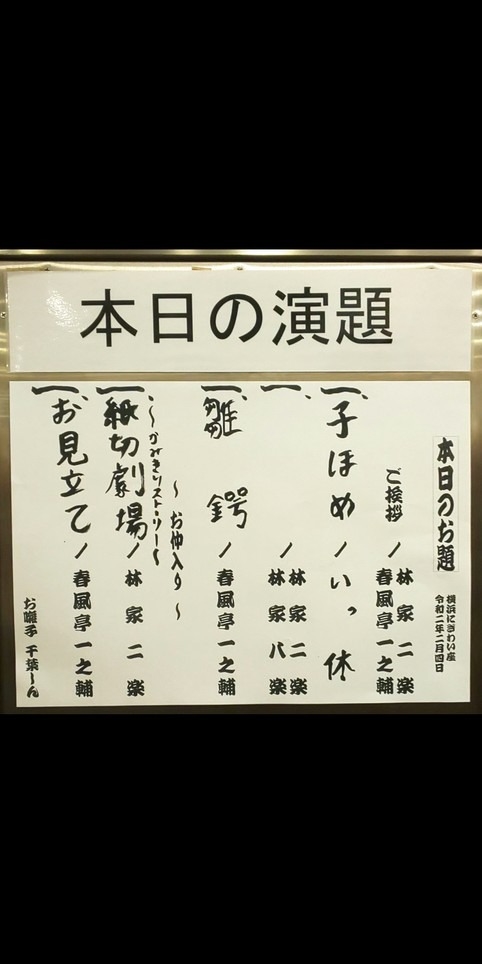 本日の演題
本日のお題
横浜にぎわい座
令和二年二月四日
ご挨拶／林家二楽
春風亭一之輔
一、子ほめ／いっ休
一、／林家二楽
林家八楽
一、雛鍔／春風亭一之輔
～お仲入り～
一、紙切劇場／林家二楽
～かみきりストーリー～
一、お見立て／春風亭一之輔
お囃子 千葉しん